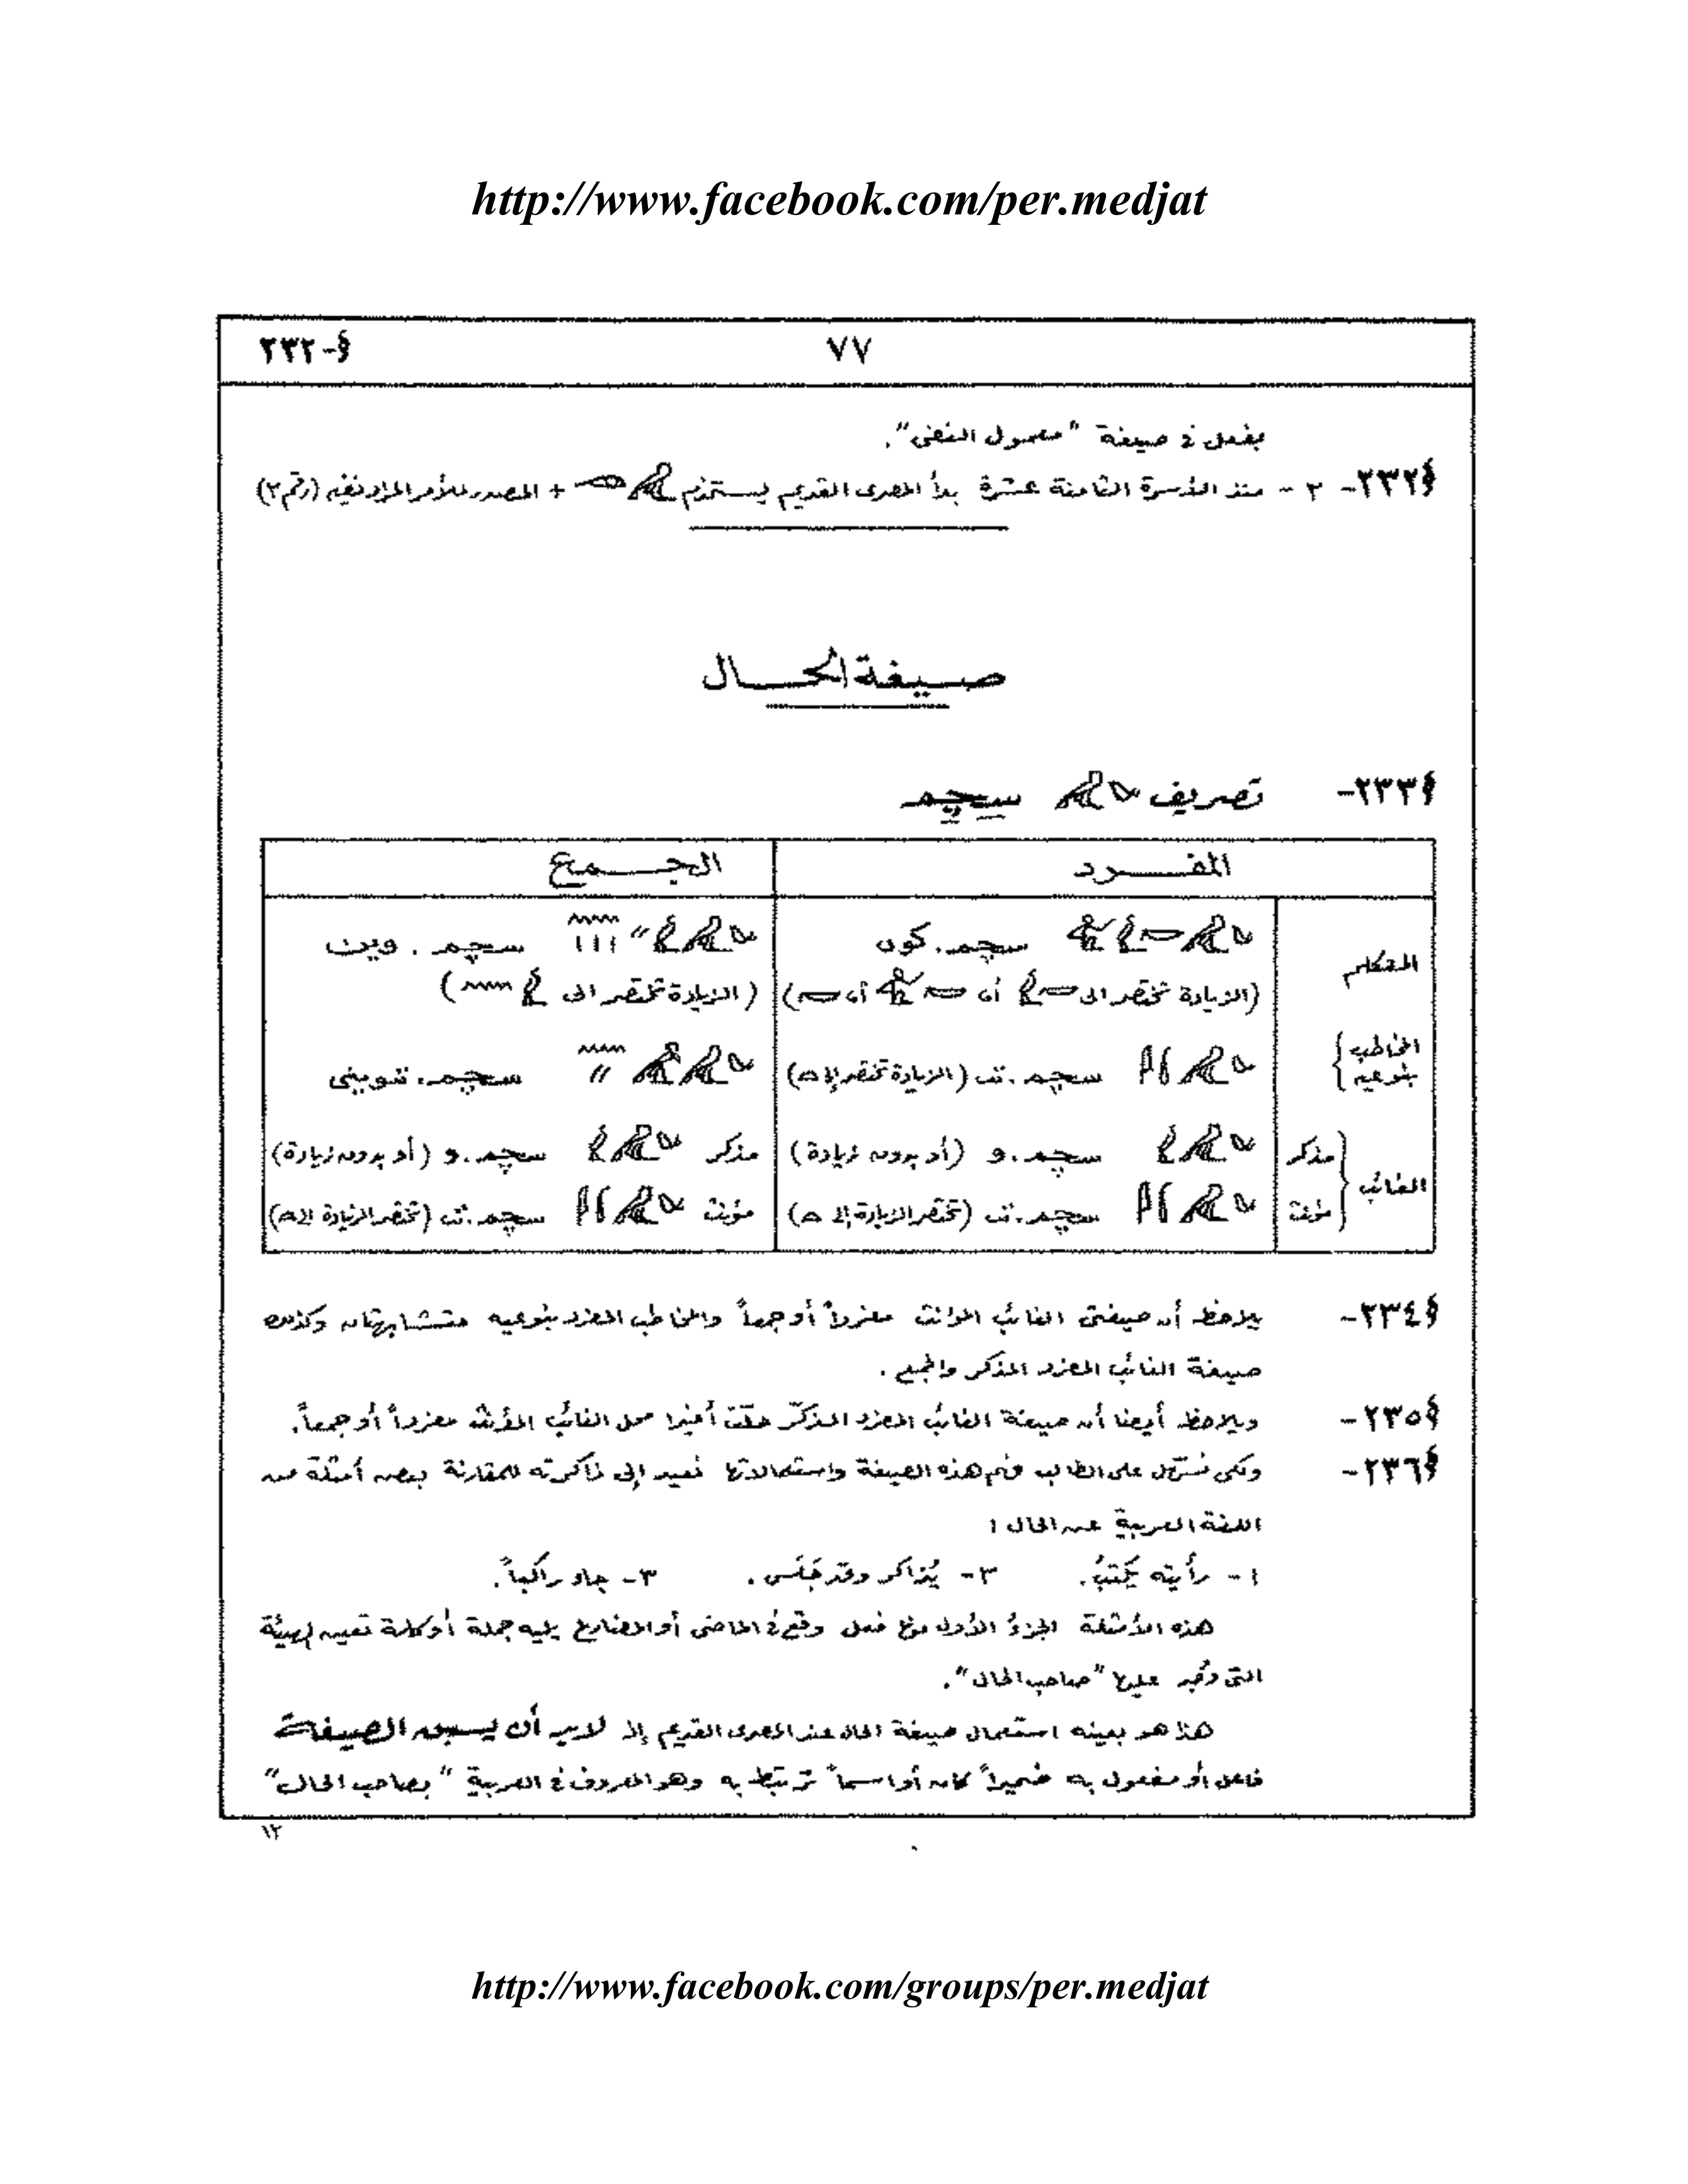 http://www.facebook.com/per.medjat
§-٢٣٢ ٧٧
بفعل فى صيغة "معمول النفى".
§٢٣٢- ٢ - منذ الأسرة الثامنة عشرة بدأ المصرى القديم يستخدم + المصدر للأمر المراد نفيه (رقم ٢)
صيغة الحال
§٢٣٣- تصريف سچم
المفرد الجمع
المتكلم سچم.كوى سچم.وين
(الزيادة تختصر الى أو أو ) (الزيادة تختصر الى )
المخاطب بنوعيه سچم.تى (الزيادة تختصر إلى ) سچم.تيوينى
الغائب مذكر سچم.و (أو بدون زيادة) مذكر سچم.و (أو بدون زيادة)
مؤنث سچم.تى (تختصر الزيادة إلى ) مؤنث سچم.تى (تختصر الزيادة إلى )
§٢٣٤- يلاحظ أن صيغتى الغائب المؤنث مفرداً أو جمعاً والمخاطب المفرد بنوعيه متشابهتان وكذلك
صيغة الغائب المفرد المذكر والجمع.
§٢٣٥- ويلاحظ أيضا أن صيغة الغائب المفرد المذكّر حلّت أخيرا محل الغائب المؤنث مفرداً أو جمعاً.
§٢٣٦- ولكى نسهّل على الطالب فهم هذه الصيغة واستعمالاتها نعيد إلى ذاكرته للمقارنة بعض أمثلة من
اللغة العربية عن الحال:
١- رأيته يكتبُ. ٢- يُذاكر وقد جَلَس. ٣- جاء راكباً.
هذه الأمثلة الجزء الأول منها فعل وقع فى الماضى أو المضارع يليه جملة أو كلمة تعين الهيئة
التى وُجد عليها "صاحب الحال".
هذا هو بعينه استعمال صيغة الحال عند المصرى القديم إذ لابد أن يسبق الصيغة
فاعل أو مفعول به ضميراً كان أو اسماً ترتبط به وهو المعروف فى العربية "بصاحب الحال"
١٢
http://www.facebook.com/groups/per.medjat